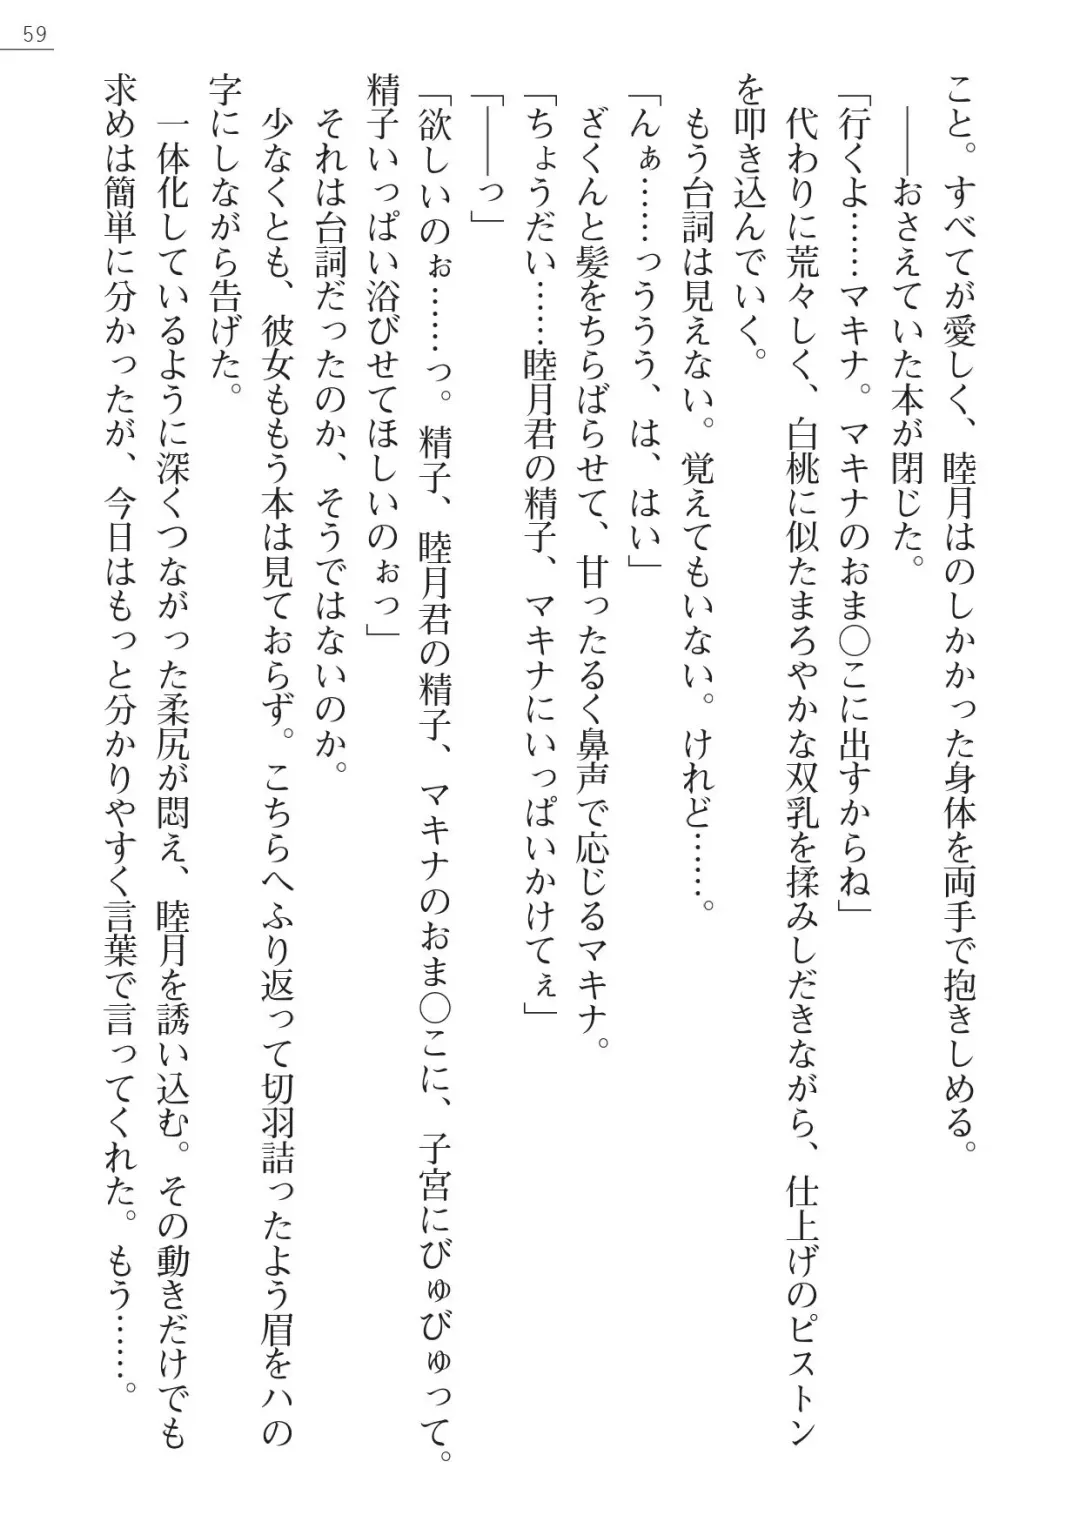 59
こと。すべてが愛しく、睦月はのしかかった身体を両手で抱きしめる。
――おさえていた本が閉じた。
「行くよ……マキナ。マキナのおま◯こに出すからね」
代わりに荒々しく、白桃に似たまろやかな双乳を揉みしだきながら、仕上げのピストン
を叩き込んでいく。
もう台詞は見えない。覚えてもいない。けれど……。
「んぁ……っううう、は、はい」
ざくんと髪をちらばらせて、甘ったるく鼻声で応じるマキナ。
「ちょうだい……睦月君の精子、マキナにいっぱいかけてぇ」
「――っ」
「欲しいのぉ……っ。精子、睦月君の精子、マキナのおま◯こに、子宮にびゅびゅって。
精子いっぱい浴びせてほしいのぉっ」
それは台詞だったのか、そうではないのか。
少なくとも、彼女ももう本は見ておらず。こちらへふり返って切羽詰ったよう眉をハの
字にしながら告げた。
一体化しているように深くつながった柔尻が悶え、睦月を誘い込む。その動きだけでも
求めは簡単に分かったが、今日はもっと分かりやすく言葉で言ってくれた。もう……。